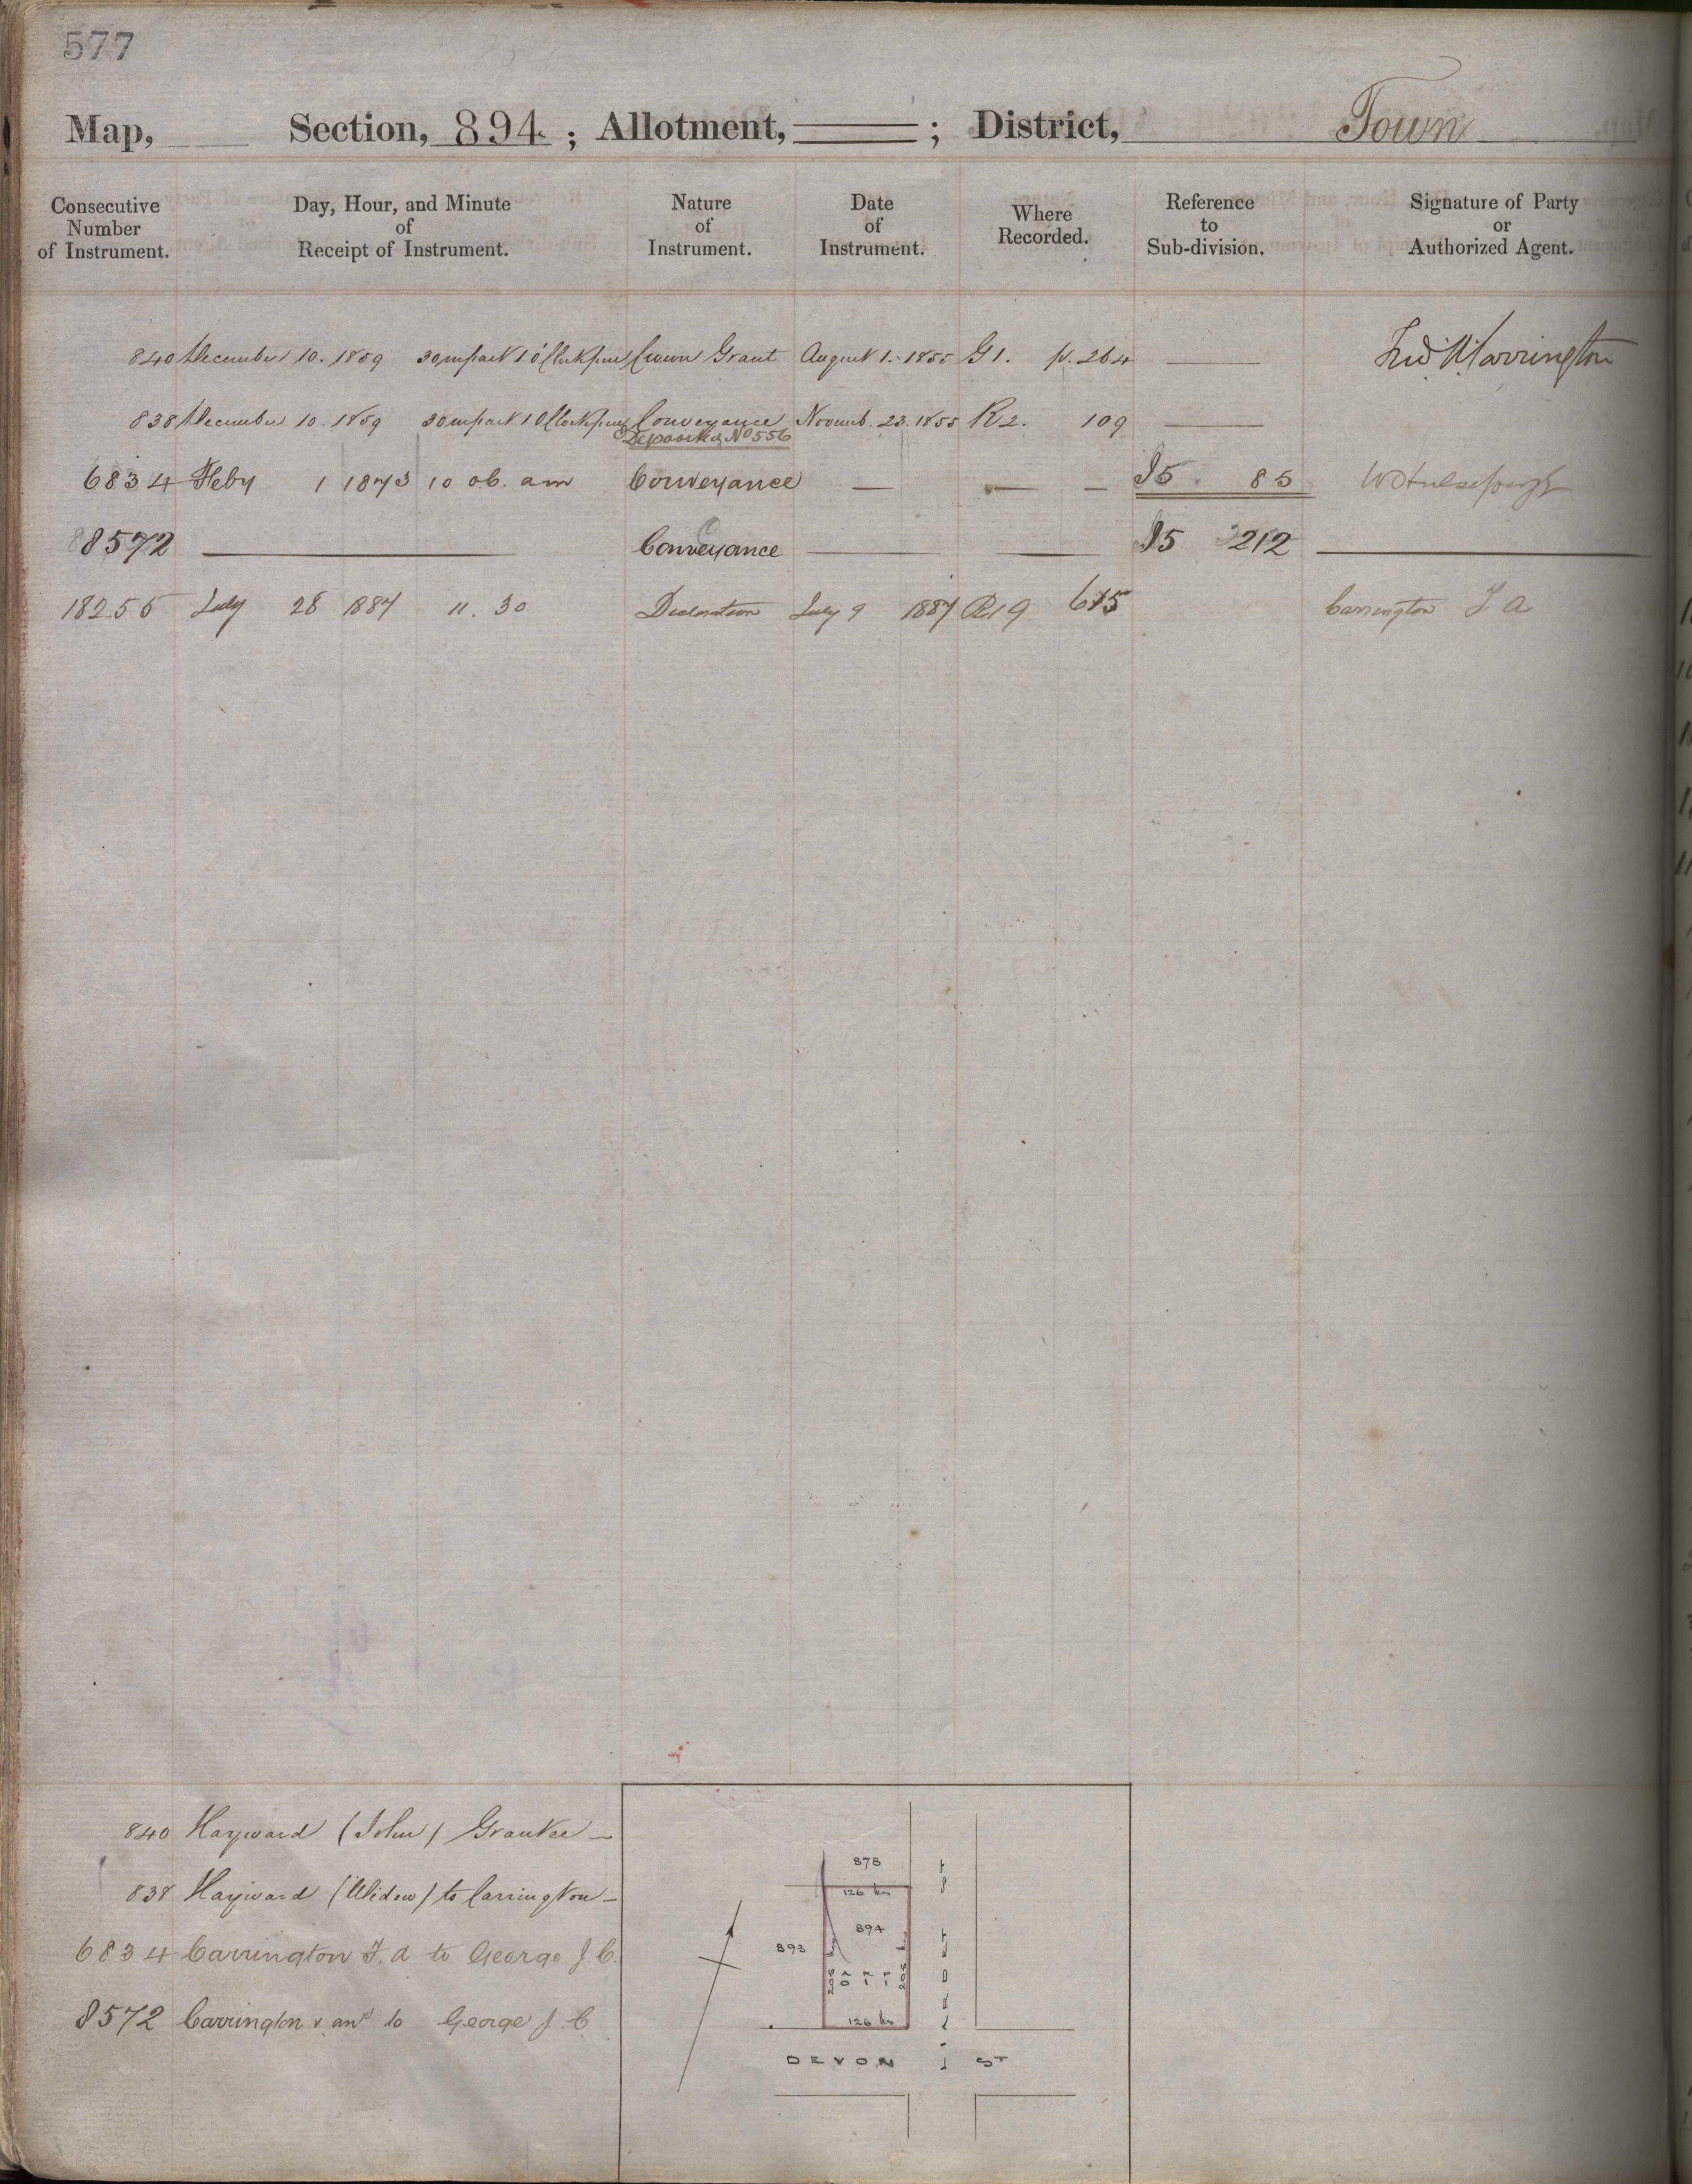 577
Map, Section, 894 ; Allotment, ; District, Town
Consecutive Number of Instrument.
Day, Hour, and Minute of Receipt of Instrument.
Nature of Instrument.
Date of Instrument.
Where Recorded.
Reference to Sub-division.
Signature of Party or Authorized Agent.
840 December 10. 1859 30 m past 1 O'Clock p.m Crown Grant August 1. 1855 G1. p. 264 Carrington
838 December 10. 1859 30 m past 1 O Clock p.m Conveyance Novemb. 23. 1855 R2. 109
Deposited No 556
6834 Feby 1 1873 10 ob. am Conveyance I5 85
8572 Conveyance I5 212
18255 July 28 1887 11. 30 Declaration July 9 1887 R19 615 Carrington F A
840 Hayward (John) Grantee
838 Hayward (Widow) to Carrington
6834 Carrington F. A to George J. C.
8572 Carrington & anr to George J. C
878
126 lks
894
893
208 lks
208 lks
126 lks
DEVON ST